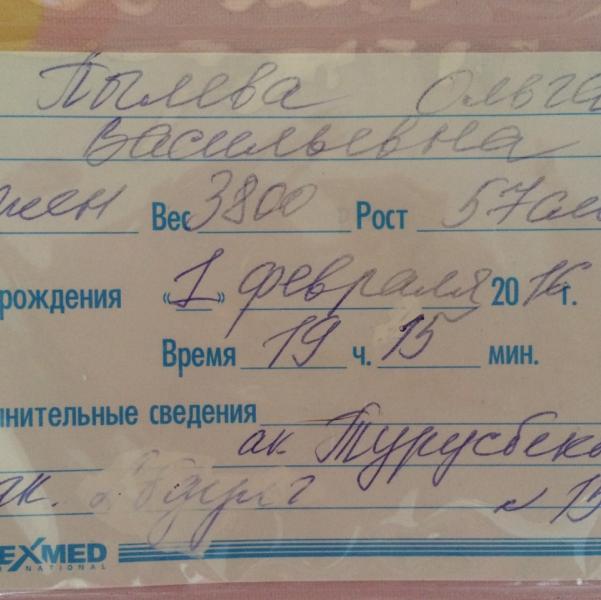 Пылева Ольга
Васильевна
жен Вес 3800 Рост 57см
рождения «1» февраля 2016 г.
Время 19 ч. 15 мин.
лнительные сведения
ак. Турусбеко
ак. № 15
EXMED
NATIONAL